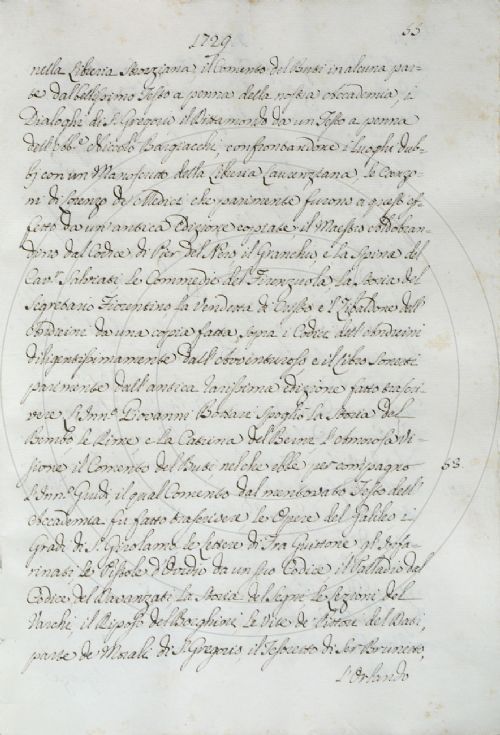 55
1729.
nella Libreria Strozziana, il Comento del Buti in alcuna par-
te dal bellissimo Testo a penna della nostra Accademia, i
Dialoghi di S. Gregorio il da un Testo a penna
dell'Ab.e Niccolò Bargiacchi, confrontandone i luoghi dub-
bj con un Manuscritto della Libreria Laurenziana, le Canzo-
ni di Lorenzo de' Medici che parimente furono a quest'ef-
fetto da un'antica Edizione copiate, il Maestro Aldobran-
dino dal Codice di Pier del Nero, il Granchio, e la Spina del
Cav.r Salviati, le Commedie del Firenzuola, la Storia del
Segretario Fiorentino la Vendetta di Cristo e il Zibaldone dell'
Andreini da una copia fatta sopra i Codici dell'Andreini
diligentissimamente dall' e il Libro Sonetti
parimente dall'antica rarissima edizione fatto trascri-
vere, l'Inn.o Giovanni Bottari spogliò la Storia del
Bembo le Rime e la Catrina del Berni, l'Amorosa Vi-
sione il Comento del Buti nel che ebbe per compagno
58
l'Inn.o Guidi, il qual Comento dal mentovato Testo dell'
Accademia fu fatto trascrivere, le Opere del Galileo i
Gradi di S. Girolamo le Lettere di Fra Guittone, gl'Infa-
rinati le Pistole d'Ovidio da un suo Codice il Palladio dal
Codice del Davanzati la Storia del Segni le Lezioni del
Varchi, il Riposo del Borghini, le Vite de' Pittori del Dati,
parte de' Morali di S. Gregorio, il Tesoretto di Ser Brunetto,
l'Orlando